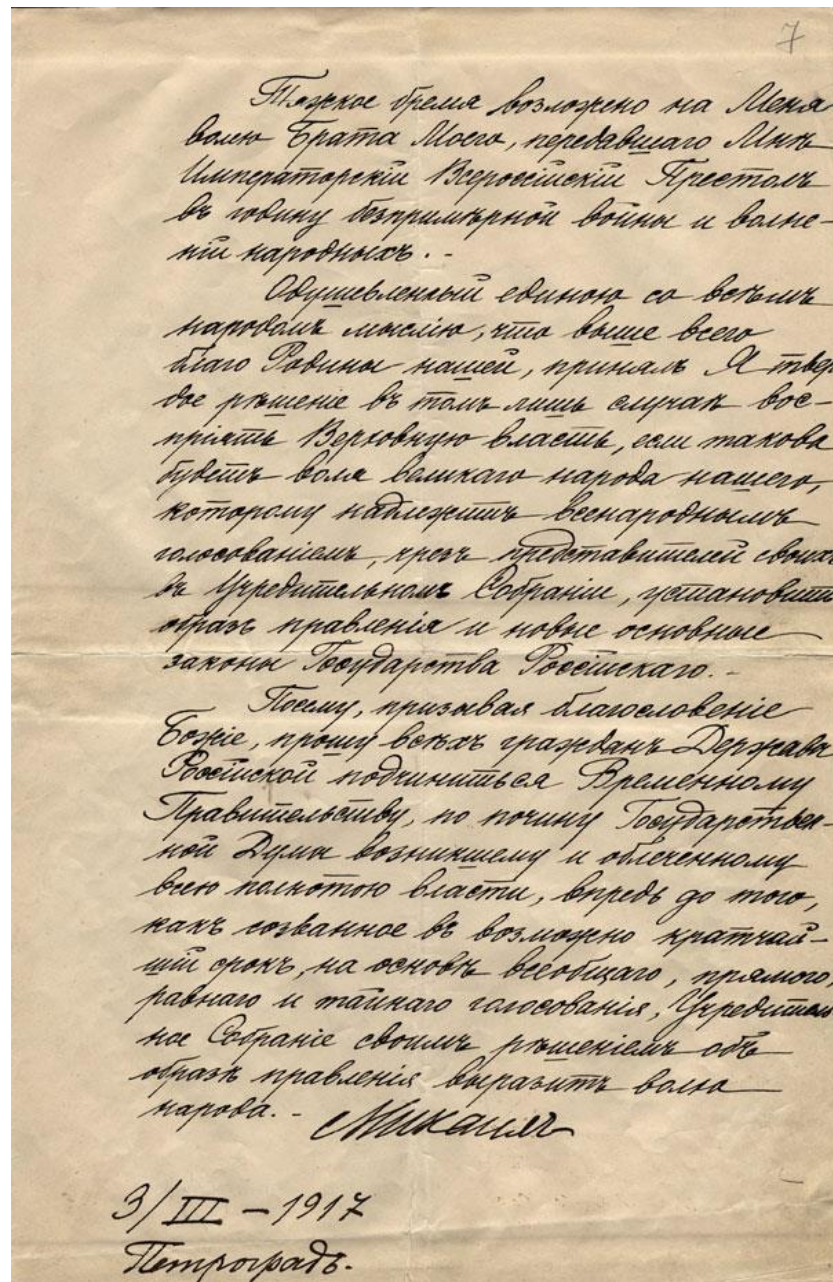 7
Тяжкое бремя возложено на Меня
волею Брата Моего, передавшаго Мнѣ
Императорскій Всероссійскій Престолъ
въ годину безпримѣрной войны и волне-
ній народныхъ.-
Одушевленный единою со всѣмъ
народомъ мыслію, что выше всего
благо Родины нашей, принялъ Я твер
дое рѣшеніе въ томъ лишь случаѣ вос-
пріять Верховную власть, если такова
будетъ воля великаго народа нашего,
которому надлежитъ всенароднымъ
голосованіемъ, чрезъ представителей своихъ
въ Учредительномъ Собраніи, установить
образъ правленія и новые основные
законы Государства Россійскаго.-
Посему, призывая благословеніе
Божіе, прошу всѣхъ гражданъ Державы
Россійской подчиниться Временному
Правительству, по почину Государствен-
ной Думы возникшему и облеченному
всею полнотою власти, впредь до того,
какъ созванное въ возможно кратчай-
шій срокъ, на основѣ всеобщаго, прямого,
равнаго и тайнаго голосованія, Учредитель
ное Собраніе своимъ рѣшеніемъ объ
образѣ правленія выразитъ волю
народа.-
Михаилъ
3/III - 1917
Петроградъ.